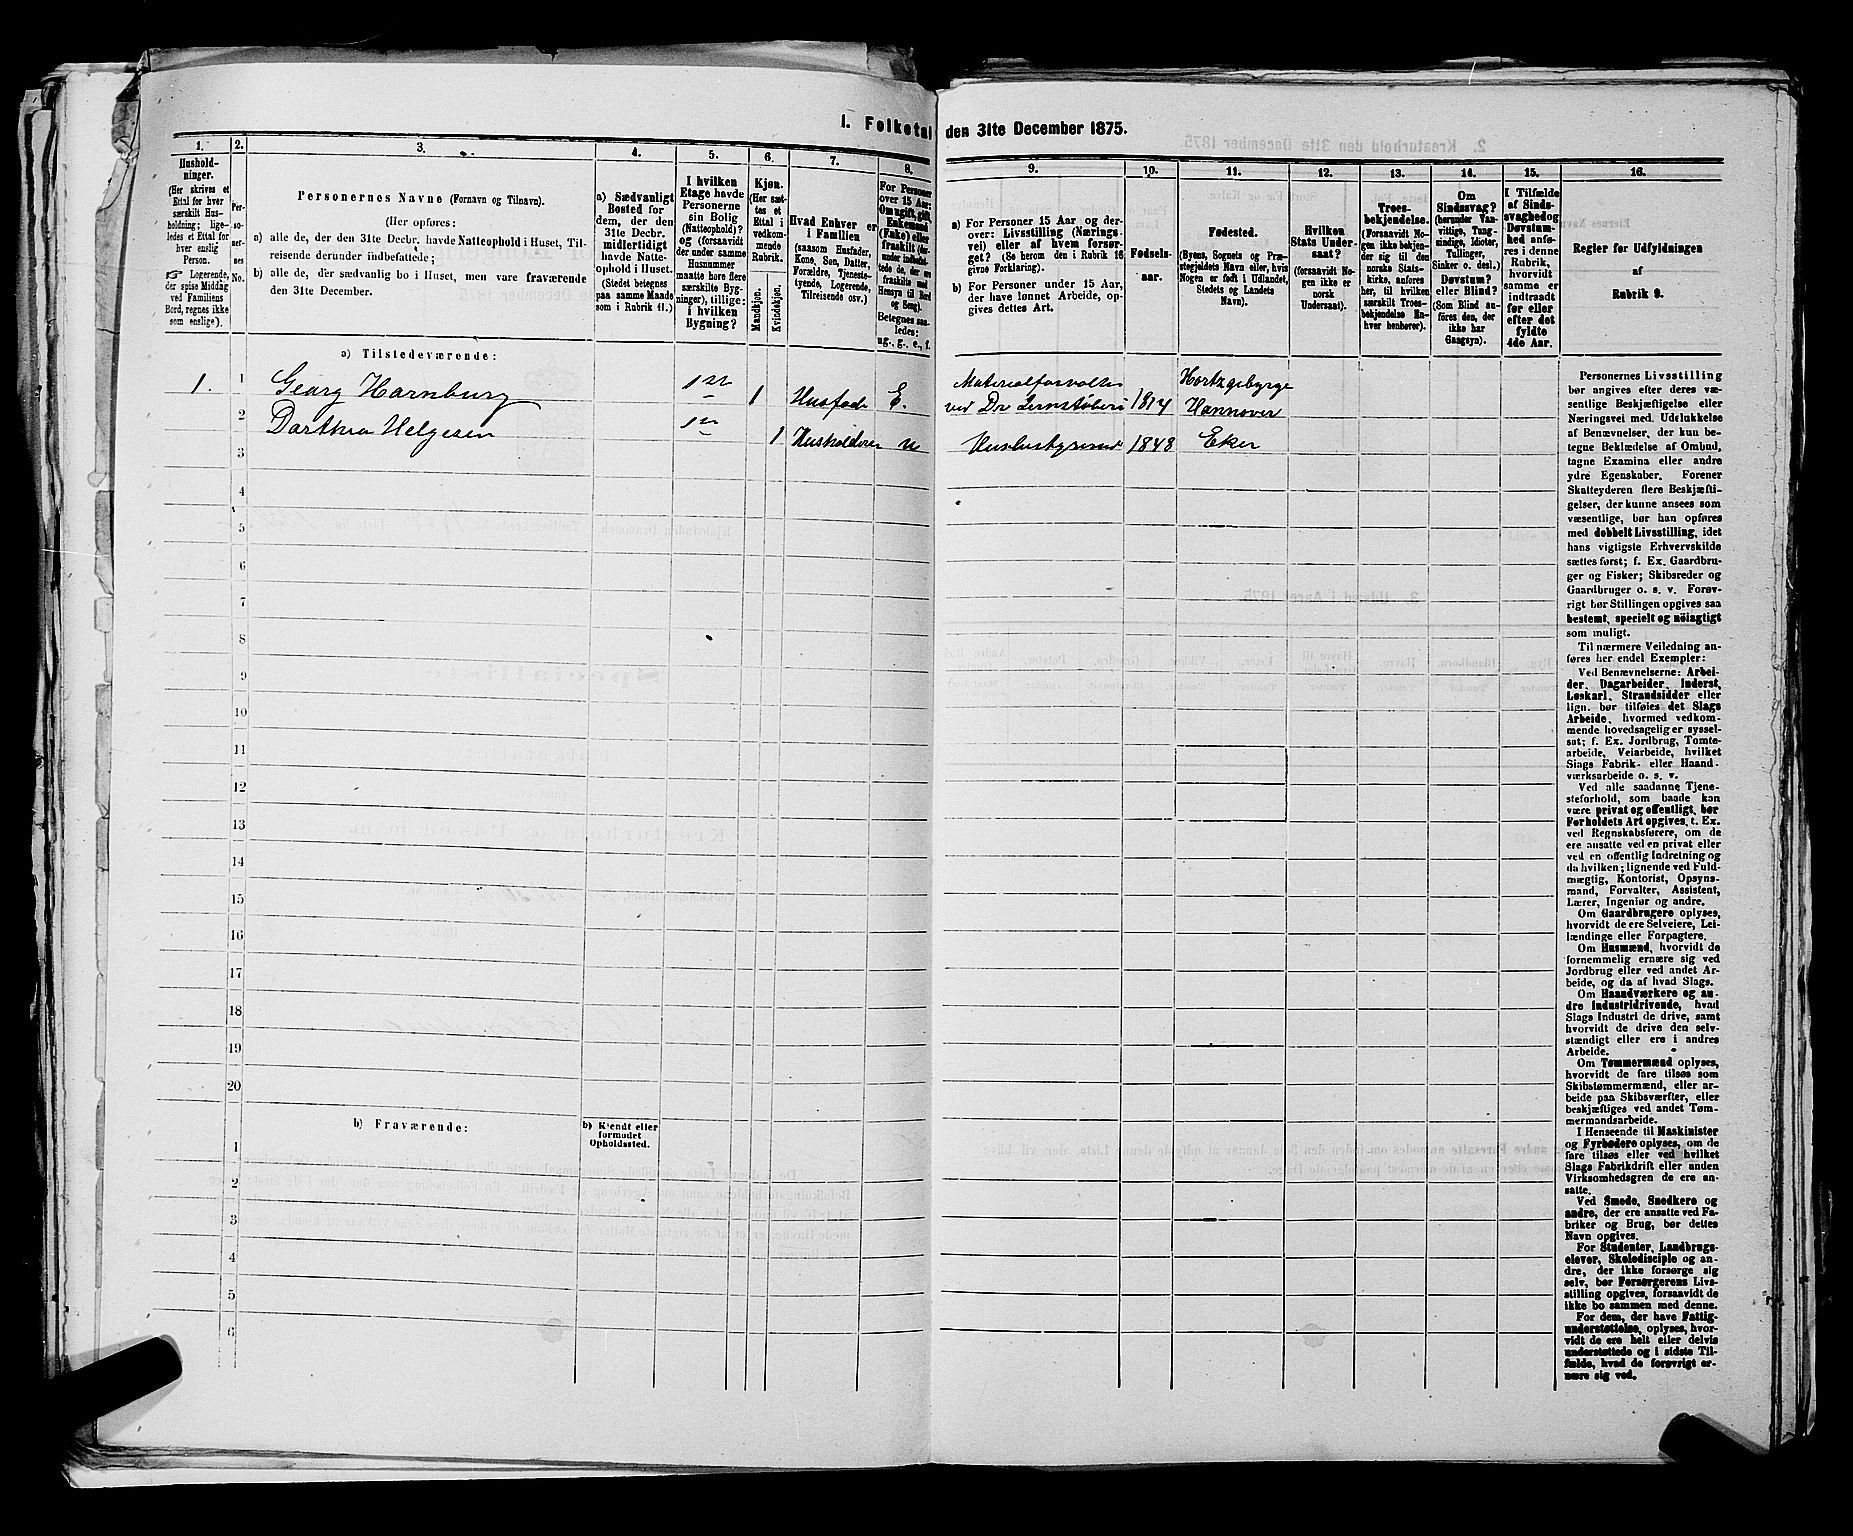 I. Folketal den 31te December 1875.
1.
Hushold-
ninger.
(Her skrives et
Ettal for hver
særskilt Hus-
holdning; lige-
ledes et Ettal for
hver enslig
Person.
☞ Logerende,
der spise Middag
ved Familiens
Bord, regnes ikke
som enslige).
2.
Per-
so-
ner-
nes
No.
3.
Personernes Navne (Fornavn og Tilnavn).
(Her opføres:
a) alle de, der den 31te Decbr. havde Natteophold i Huset, Til-
reisende derunder indbefattede;
b) alle de, der sædvanlig bo i Huset, men vare fraværende
den 31te December.
4.
a) Sædvanligt
Bosted for
dem, der den
31te Decbr.
midlertidigt
havde Natte-
ophold i Huset.
(Stedet betegnes
paa samme Maade
som i Rubrik 11.)
5.
I hvilken
Etage havde
Personerne
sin Bolig
(Natteophold)?
og (forsaavidt
der under samme
Husnummer
maatte høre flere
særskilte Byg-
ninger), tillige:
i hvilken
Bygning?
6.
Kjøn.
(Her sæt-
tes et
Ettal i
vedkom-
mende
Rubrik.
Mandkjøn.
Kvindekjøn.
7.
Hvad Enhver er
i Familien
(saasom Husfader,
Kone, Søn, Datter,
Forældre, Tjeneste-
tyende, Logerende,
Tilreisende osv.)
8.
For Personer
over 15 Aar:
Om ugift, gift,
Enkemand
(Enke) eller
fraskilt
Betegnes saa-
ledes:
ug., g., e., f.
9.
a) For Personer 15 Aar og der-
over: Livsstilling (Nærings-
vei) eller af hvem forsør-
get? (Se herom den i Rubrik 16
givne Forklaring).
b) For Personer under 15 Aar,
der have lønnet Arbeide, op-
gives dettes Art.
10.
Fødsels-
aar.
11.
Fødested.
(Byens, Sognets og Præ-
stegjeldets Navn eller, hvis
Nogen er født i Udlandet,
Stedets og Landets
Navn).
12.
Hvilken
Stats Under-
saat?
(forsaavidt No-
gen ikke er
norsk
Undersaat).
13.
Troes-
bekjendelse.
(Forsaavidt No-
gen ikke bekjen-
der sig til den
norske Stats-
kirke, anføres
her, til hvilken
særskilt Troes-
bekjendelse En-
hver henhører).
14.
Om
Sindssvag?
(herunder Van-
vittige, Tung-
sindige, Idioter,
Tullinger,
Sinker o. desl.)
Døvstum?
eller Blind?
(Som Blind an-
føres den, der
ikke har
Gangsyn).
15.
I Tilfælde
af Sinds-
svaghed og
Døvstum-
hed anfø-
res i denne
Rubrik,
hvorvidt
samme er
indtraadt
før eller
efter det
fyldte
4de Aar.
16.
Regler før Udfyldningen
af
Rubrik 9.
a) Tilstedeværende:
1. 1 Georg Harnburg 1ste 1 Husfader E. Materialforvalter ved Dr 1814 Hartzgebyrge Hannover
2 Dorthea Helgesen 1ste 1 Husholderen u Husbestyrerinde 1848 Eker
3
4
5
6
7
8
9
10
11
12
13
14
15
16
17
18
19
20
b) Fraværende:
b) Kjendt eller
formodet
Opholdssted.
1
2
3
4
5
6
Personernes Livsstilling
bør angives efter deres væ-
sentlige Beskjæftigelse eller
Næringsvei med Udelukkelse
af Benævnelser, der kun be-
tegne Beklædelse af Ombud,
tagne Examina eller andre
ydre Egenskaber. Forener
Skatteyderen flere Beskjæfti-
gelser, der kunne ansees som
væsentlige, bør han opføres
med dobbelt Livsstilling, idet
hans vigtigste Erhvervskilde
sættes først; f. Ex. Gaardbru-
ger og Fisker; Skibsreder og
Gaardbruger o. s. v. Forøv-
rigt bør Stillingen opgives saa
bestemt, specielt og nöiagtigt
som muligt.
Til nærmere Veiledning an-
føres her endel Exempler:
Ved Benævnelserne: Arbei-
der, Dagarbeider, Inderst,
Løskarl, Strandsidder eller
lign. bør tilføies det Slags
Arbeide, hvormed vedkom-
mende hovedsagelig er syssel-
sat; f. Ex. Jordbrug, Tomte-
arbeide, Veiarbeide, hvilket
Slags Fabrik- eller Haand-
værksarbeide o. s. v.
Ved alle saadanne Tjene-
steforhold, som baade kan
være privat og offentligt, bør
Forholdets Art opgives, t. Ex.
ved Regnskabsførere, om de
ere ansatte ved en privat eller
ved en offentlig Indretning og
da hvilken; lignende ved Fuld-
mægtig, Kontorist, Opsyns-
mand, Forvalter, Assistent,
Lærer, Ingeniør og andre.
Om Gaardbrugere oplyses,
hvorvidt de ere Selveiere, Lei-
lændinge eller Forpagtere.
Om Husmænd, hvorvidt de
fornemmelig ernære sig ved
Jordbrug eller ved andet Ar-
beide, og da af hvad Slags.
Om Haandværkere og an-
dre Industridrivende, hvad
Slags Industri de drive, samt
hvorvidt de drive den selv-
stændigt eller ere i andres
Arbeide.
Om Tømmermænd oplyses,
hvorvidt de fare tilsøs som
Skibstømmermænd, eller ar-
beide paa Skibsværfter, eller
beskjæftiges ved andet Tøm-
mermandsarbeide.
I Henseende til Maskinister
og Fyrbødere oplyses, om de
fare tilsøs eller ved hvilket
Slags Fabrikdrift eller anden
Virksomhedsgren de ere an-
satte.
Ved Smede, Snedkere og
andre, der ere ansatte ved Fa-
briker og Brug, bør dettes
Navn opgives.
For Studenter, Landbrugs-
elever, Skoledisciple og an-
dre, der ikke forsørge sig
selv, bør Forsørgerens Livs-
stilling opgives, forsaavidt de
ikke bo sammen med denne.
For dem, der have Fattig-
understøttelse, oplyses, hvor-
vidt de ere helt eller delvis
understøttede og i sidste Til-
fælde, hvad de forøvrigt er-
nære sig ved.